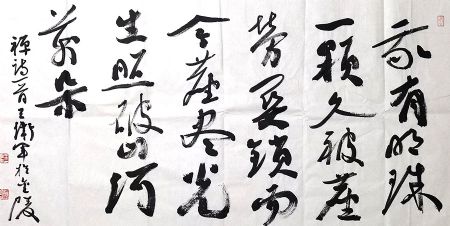 我有明珠
一颗久被尘
劳关锁而
今尘尽光
生照破山河
万朵
禅诗一首王卫军于金陵